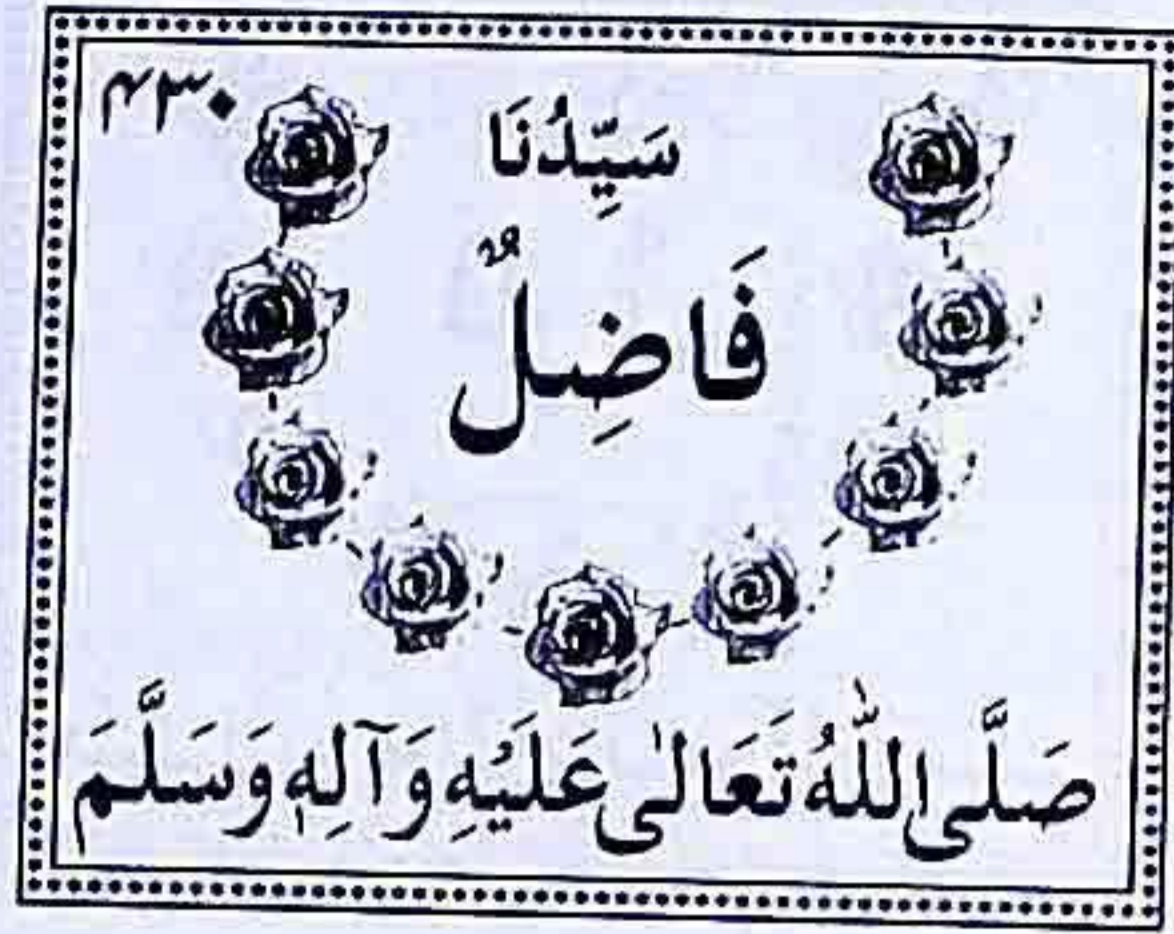 ۴۳۰
سَيِّدُنَا
فَاضِلٌ
صَلَّى اللّٰهُ تَعَالٰى عَلَيْهِ وَآلِهٖ وَسَلَّمَ